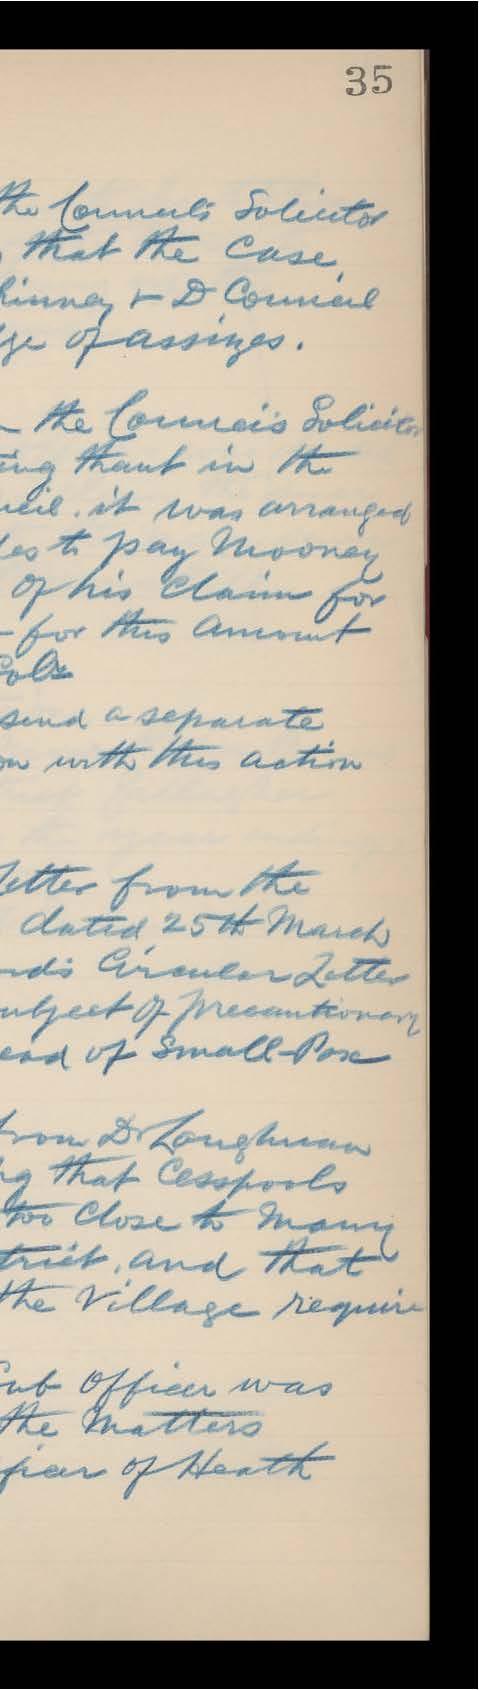 35
the Councils Solicitor
that the Case
Kinney & D Council
ge of assizes.
the Councis Solicitor
ing thant in the
cil. it was arranged
les to pay Mooney
of his Claim for
for this Amount
Cols
send a separate
on with this action
Letter from the
dated 25th March
rds Circular Letter
ubject of precautionary
ead of Small-Pox
from Dr Loughman
ng that Cesspools
too Close to Many
trict, and that
the Village require
Sub Officer was
the Matters
ficer of Heath